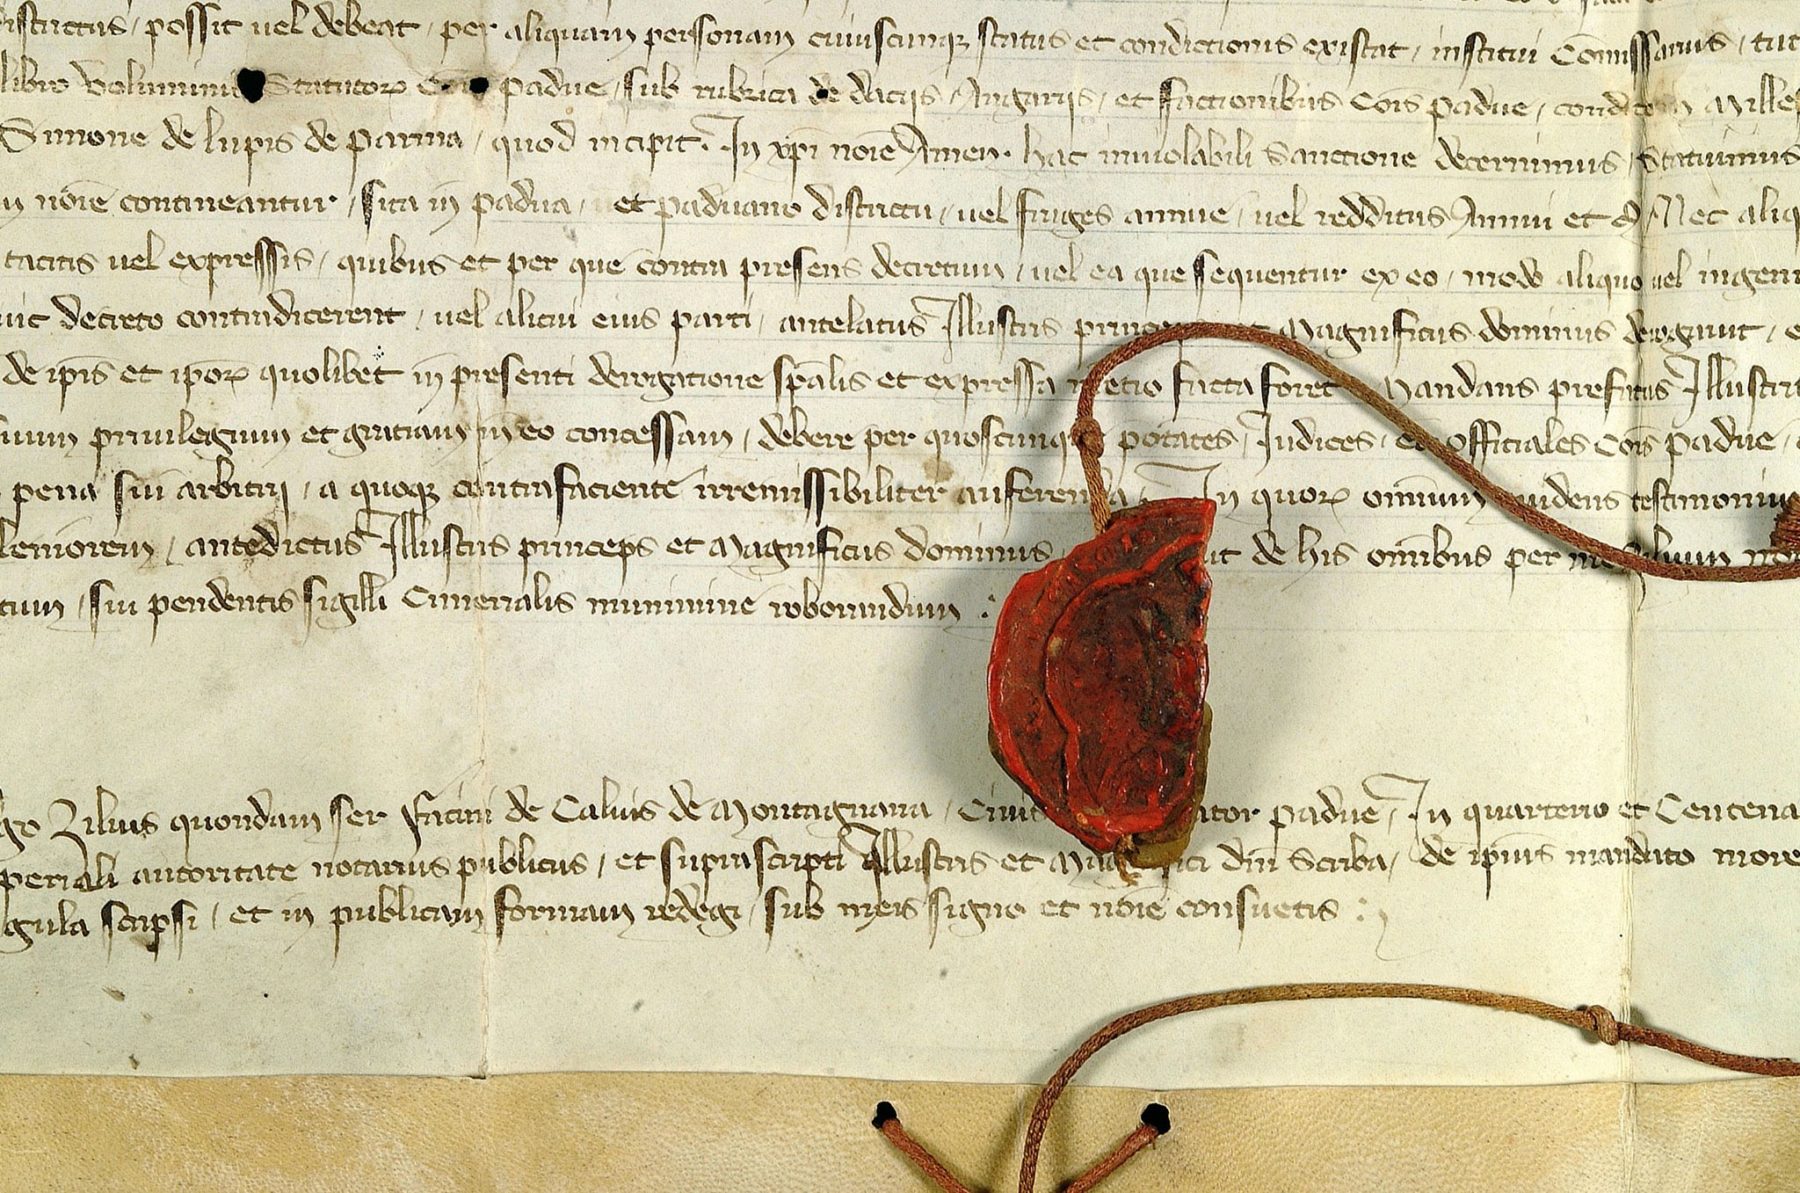 possit vel debeat, per aliquam personam cuiuscunqꝫ status et condictionis existat, institui Com̄issarius,
libro Voluminis Statutoꝝ padue, sub rubrica de dacijs, Angarijs, et factionibus Cōis padue,
Simone de lupis de parma, quod incipit. In xp̄i noīe Amen. hac inviolabili Sanctione decernimus, Statuimus
noīe contineantur, sita in padua, et paduano districtu, vel fruges annue, vel redditus Annui et Nec
tacitis vel expressis, quibus et per que contra presens decretum, vel ea que sequentur ex eo, modo aliquo vel
decreto contradicerent, vel alicui eius parti, antelatus Illustris Magnificus dominus derogavit,
de ip̄is et ipoꝝ quolibet in presenti derogatione sp̄alis et expressa facta foret Mandans prefatus
privilegium et gratiam in eo concessam, debere per quoscunqꝫ potātes, Iudices, officiales Cōis padue,
pena sui arbitrij, a quoqꝫ contrafaciente irremissibiliter In quoꝝ omnium
antedictus Illustris princeps et Magnificus dominus, de his om̄ibus per
sui pendentis sigilli Cimerialis munimine roborandum :
Zilius quondam ser de Calvis de Montagnana, padue, In quarterio et
autoritate notarius publicus, et suprascripti Illustris et dn̄i Scriba, de ip̄ius mandato more
scripsi, et in publicam formam redegi, sub meis signo et noīe consuetis :